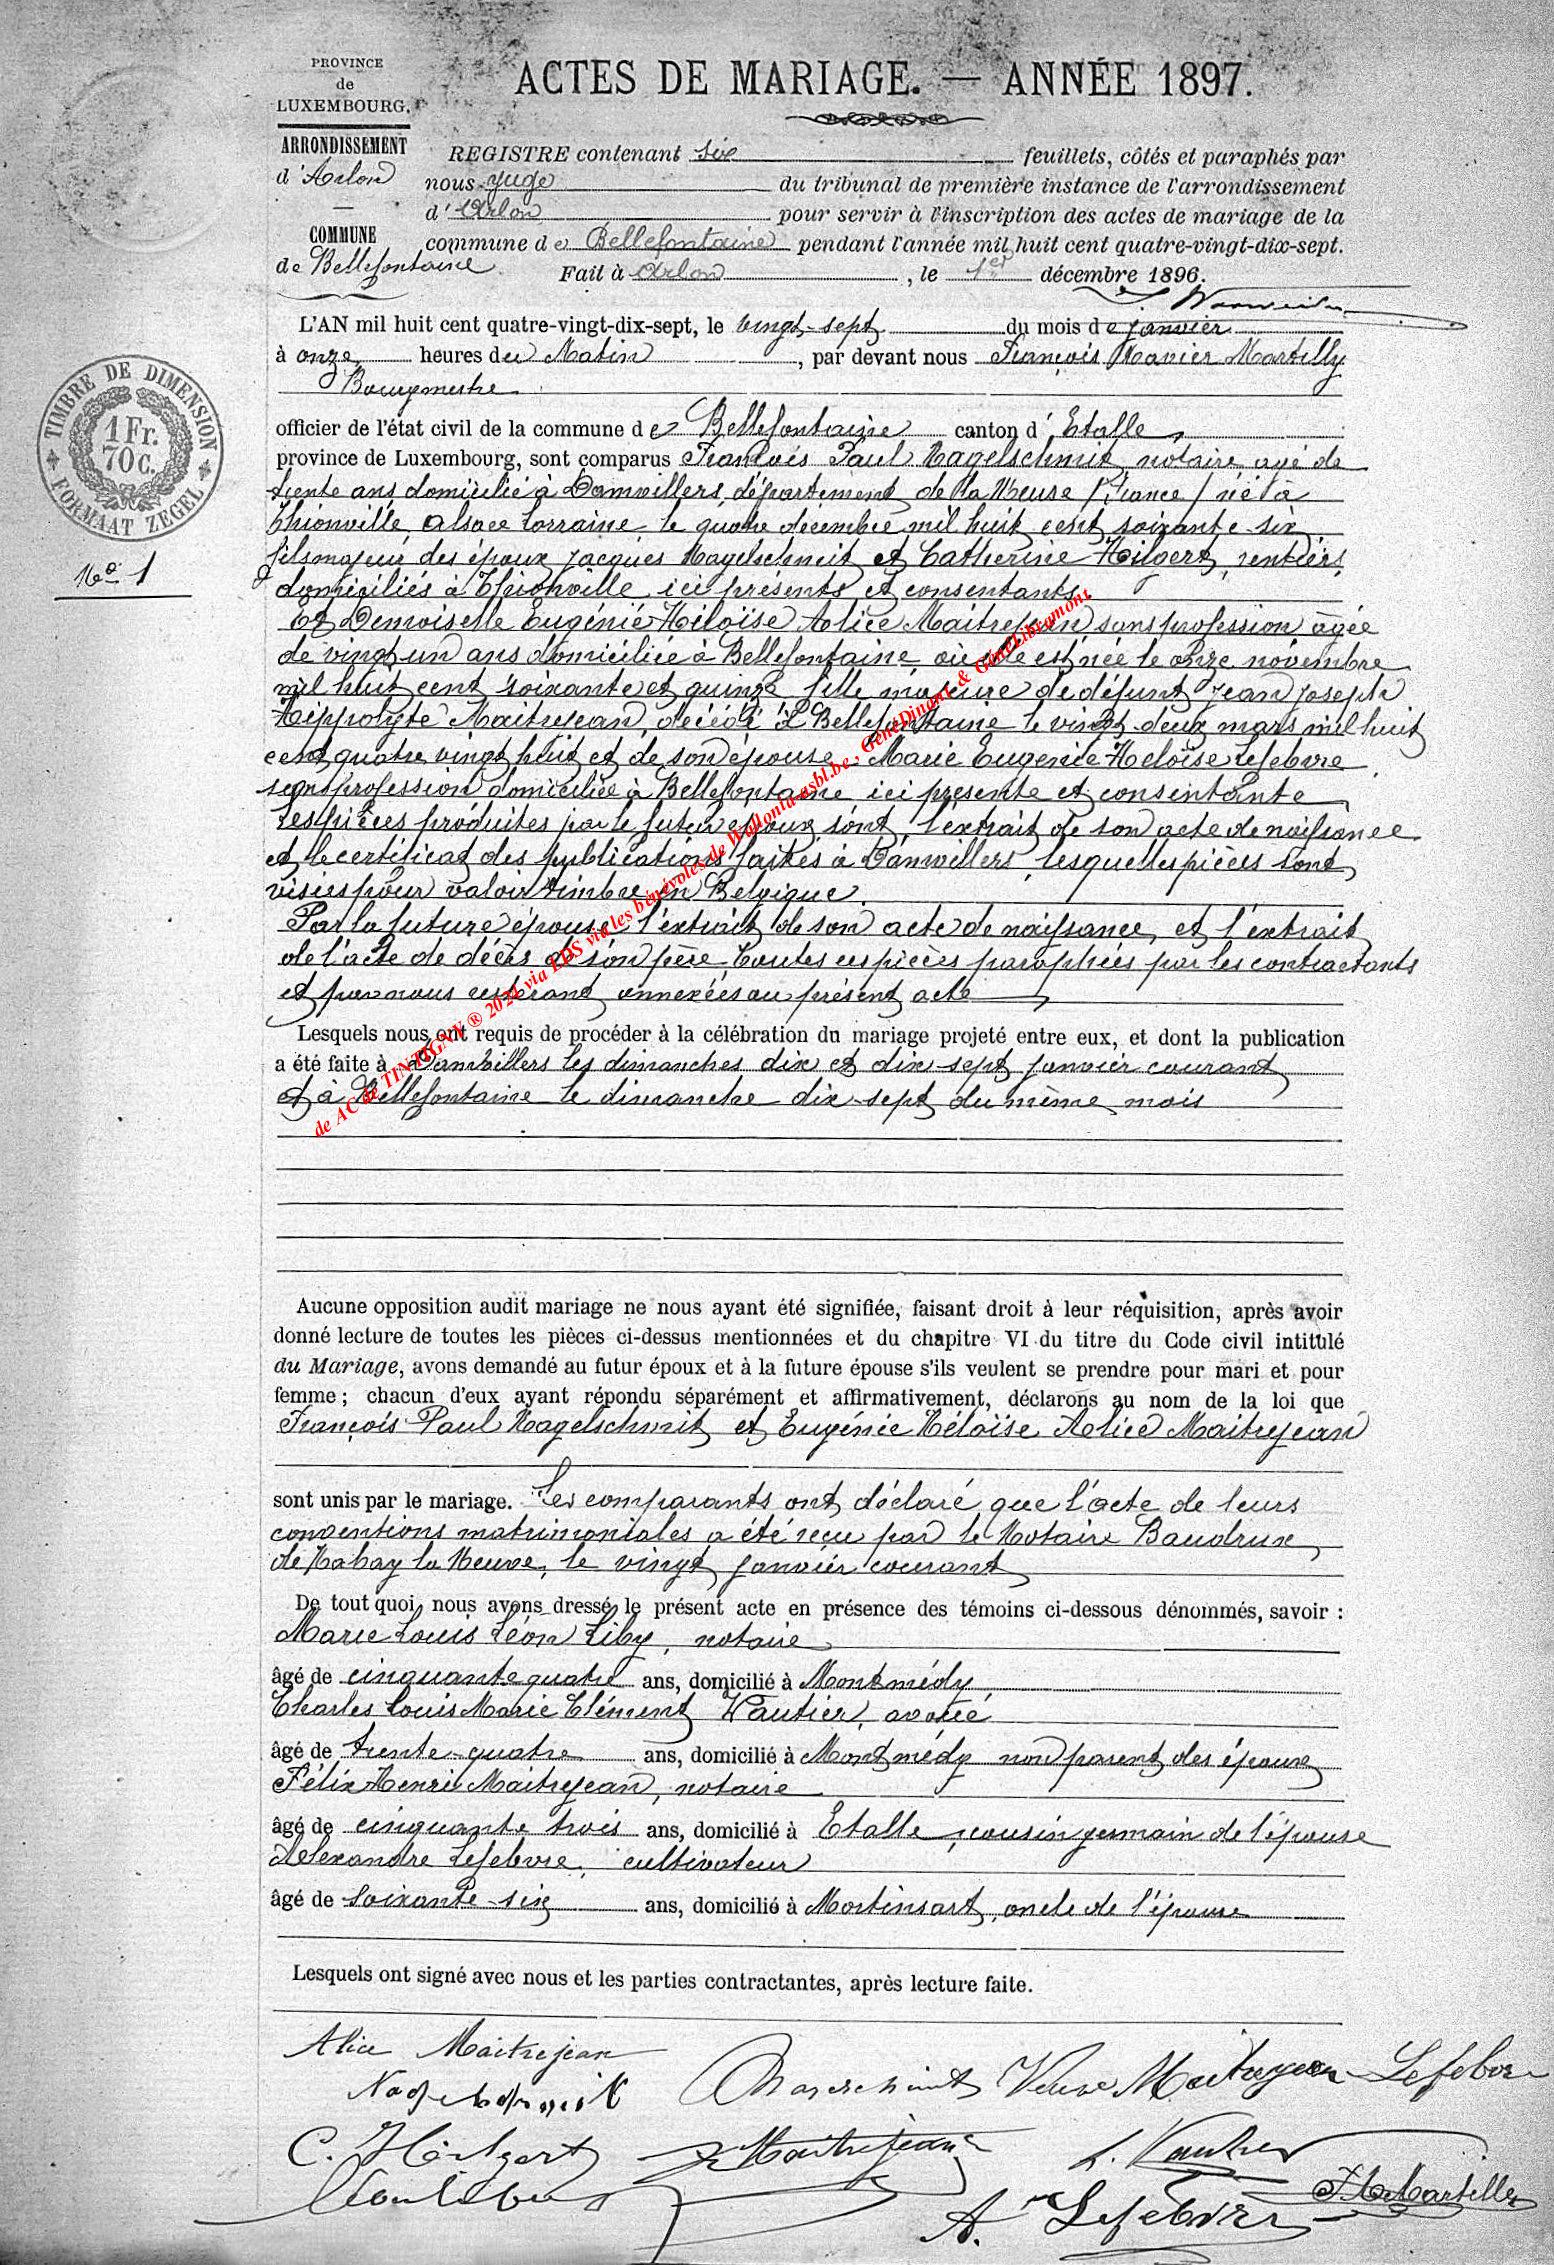 PROVINCE
de
LUXEMBOURG.
ARRONDISSEMENT
d'Arlon
COMMUNE
de Bellefontaine
ACTES DE MARIAGE. — ANNÉE 1897.
REGISTRE contenant six feuillets, côtés et paraphés par
nous juge du tribunal de première instance de l'arrondissement
d'Arlon pour servir à l'inscription des actes de mariage de la
commune de Bellefontaine pendant l'année mil huit cent quatre-vingt-dix-sept.
Fait à Arlon, le 1er décembre 1896.
TIMBRE DE DIMENSION
1 Fr.
70 C.
FORMAAT ZEGEL
No 1
L'AN mil huit cent quatre-vingt-dix-sept, le vingt-sept du mois de janvier
à onze heures du Matin, par devant nous François Xavier Martilly
Bourgmestre
officier de l'état civil de la commune de Bellefontaine canton d'Etalle,
province de Luxembourg, sont comparus François Paul Nagelschmit, notaire, agé de
trente ans domicilié à Damvillers, département de la Meuse (France) né à
Thionville, Alsace Lorraine le quatre décembre mil huit cent soixante six
fils majeur des époux Jacques Nagelschmit et Catherine Hilgert, rentiers,
domiciliés à Thionville ici présents et consentants.
Et Demoiselle Eugénie Héloïse Alice Maitrejean sans profession, agée
de vingt un ans domiciliée à Bellefontaine où elle est née le onze novembre
mil huit cent soixante et quinze fille majeure de défunt Jean Joseph
Hippolyte Maitrejean, décédé à Bellefontaine le vingt-deux mars mil huit
cent quatre vingt huit et de son épouse Marie Eugénie Heloïse Lefebvre
sans profession domiciliée à Bellefontaine ici présente et consentante
Les pièces produites par le futur époux sont, l'extrait de son acte de naissance
et le certificat des publications faites à Damvillers, lesquelles pièces sont
visées pour valoir timbre en Belgique.
Par la future épouse l'extrait de son acte de naissance, et l'extrait
de l'acte de décès de son père, toutes ces pièces paraphées par les contractants
et par nous resteront annexées au présent acte
de AC de TINTIGNY ® 2024 via EDS via les bénévoles de Wallonia-asbl.be, GénéDinant & GénéLibramont
Lesquels nous ont requis de procéder à la célébration du mariage projeté entre eux, et dont la publication
a été faite à Damvillers les dimanches dix et dix-sept janvier courant
et à Bellefontaine le dimanche dix-sept du même mois
Aucune opposition audit mariage ne nous ayant été signifiée, faisant droit à leur réquisition, après avoir
donné lecture de toutes les pièces ci-dessus mentionnées et du chapitre VI du titre du Code civil intitulé
du Mariage, avons demandé au futur époux et à la future épouse s'ils veulent se prendre pour mari et pour
femme ; chacun d'eux ayant répondu séparément et affirmativement, déclarons au nom de la loi que
François Paul Nagelschmit et Eugénie Héloïse Alice Maitrejean
sont unis par le mariage. Les comparants ont déclaré que l'acte de leurs
conventions matrimoniales a été reçu par le Notaire Baudrux
de Habay la Neuve, le vingt janvier courant
De tout quoi, nous avons dressé le présent acte en présence des témoins ci-dessous dénommés, savoir :
Marie Louis Léon notaire
âgé de cinquante quatre ans, domicilié à Montmédy
Charles Louis Marie Clément Vautier, avoué
âgé de trente-quatre ans, domicilié à Montmédy non parent des époux
Félix Henri Maitrejean, notaire
âgé de cinquante trois ans, domicilié à Etalle, cousin germain de l'épouse
Alexandre Lefebvre, cultivateur
âgé de soixante-six ans, domicilié à Mortinsart, oncle de l'épouse
Lesquels ont signé avec nous et les parties contractantes, après lecture faite.
Alice Maitrejean
Nagelschmit Veuve Maitrejean-Lefebvre
C. Hilgert Maitrejean L. Vautier
A. Lefebvre F X Martilly